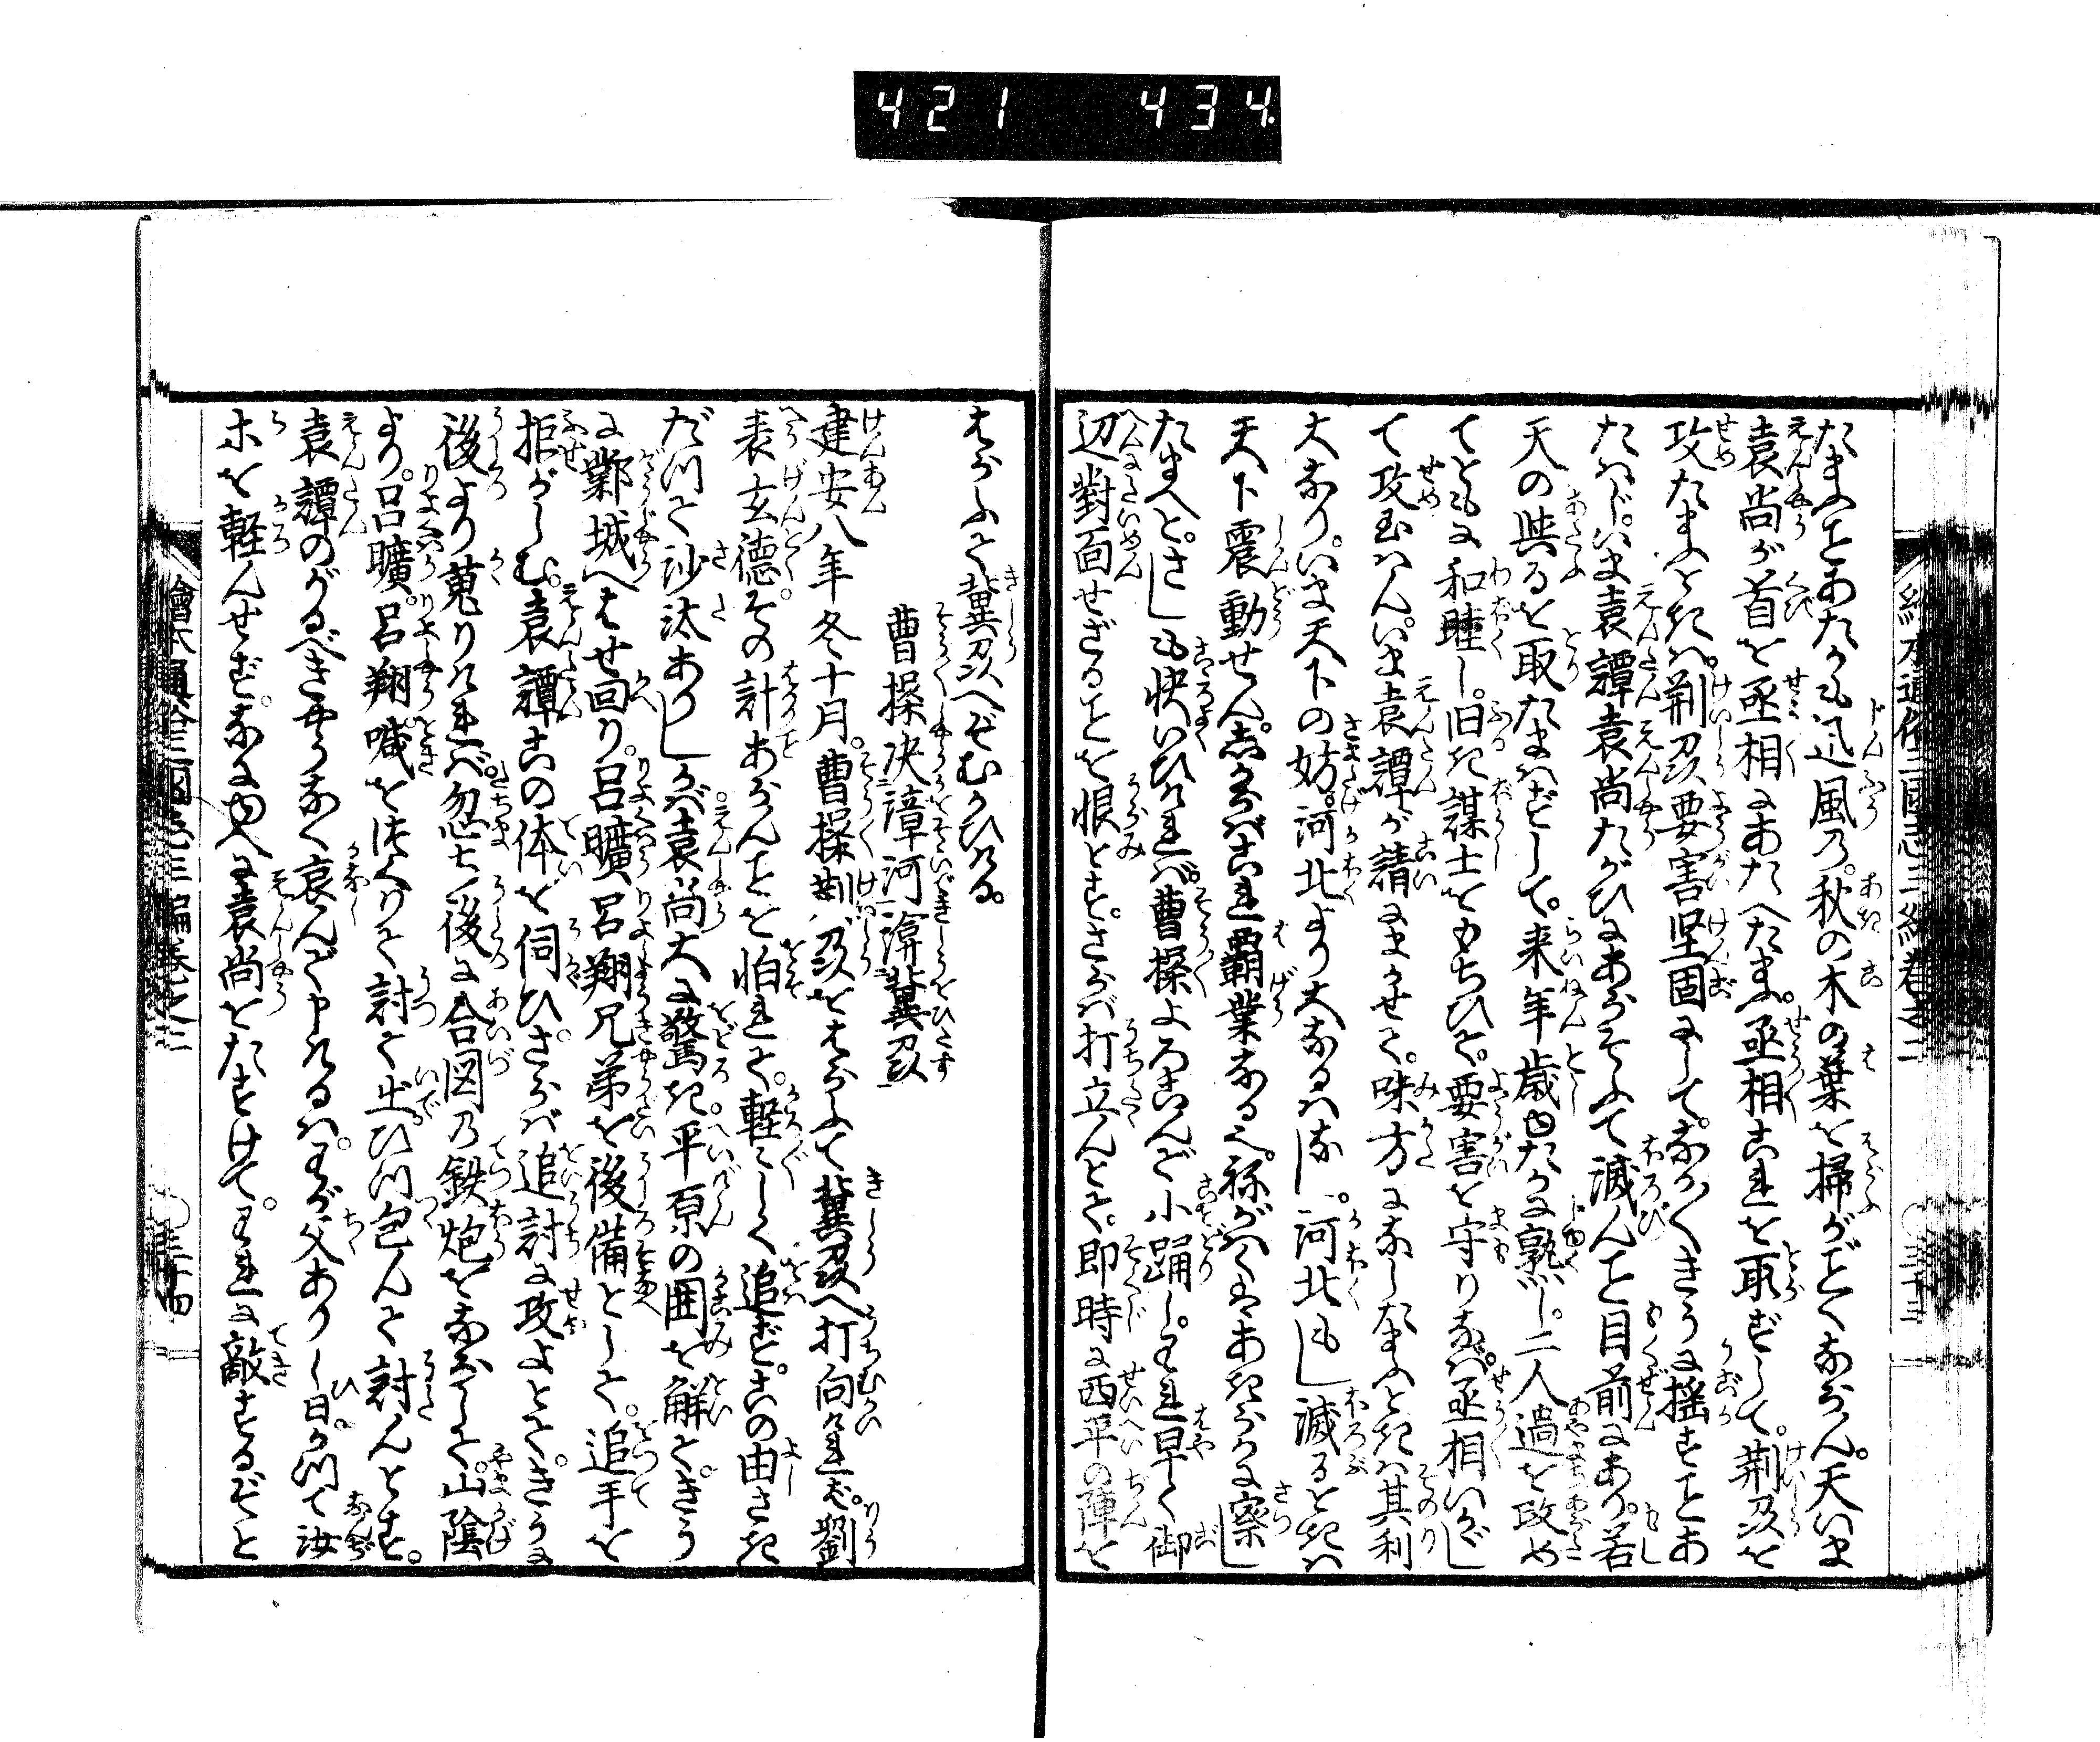 421 434
絵本通俗三國志三編巻之二 ○三十三
たまふことあたかも迅風乃。秋の木の葉を掃がごとくならん。天いま
袁尚が首を丞相にあたへたまふ。丞相これを取ずして。荆州を
攻たまふときハ。荆州要害堅固にして。なか〳〵きうに揺すことあ
たハじ。いま袁譚袁尚たがひにあらそふて滅んこと目前にあり。若
天の与るを取たまハずして。来年歳ゆたかに熟し。二人過を改め
てともに和睦し。旧き謀士をもちひて。要害を守りなバ。丞相いかゞし
て攻玉ハん。いま袁譚が請にまかせて。味方になしたまふときハ其利
大なり。いま天下の妨。河北より大なるハなし。河北もし滅るときハ
天下震動せん。しからバこれ覇業なるべし。ねがハくハあきらかに察し
たまへと。さしも快いひければ。曹操よろこんで小踊し。われ早く御
辺對面せざることを恨とす。さらバ打立んとて。即時に西平の陣を
はらふて冀州へぞむかひける。
曹操决漳河渰冀州
建安八年冬十月。曹操荆州をはらふて冀州へ打向ければ。劉
表玄德。その計あらんことを怕れて。軽〻しく追ず。この由さき
だつて沙汰ありしかバ。袁尚大に驚き。平原の囲を解て。きう
に鄴城へはせ回り。呂曠呂翔兄弟を後備として。追手を
拒がしむ。袁譚この体を伺ひ。さらバ追討に攻よとて。きうに
後より蒐りければ。忽ち後に合図乃鉄炮をならして。山陰
より。呂曠。呂翔。喊をつくりて討て出。ひつ包んて討んとす。
袁譚のがるべきやうなく哀んで申けるハ。わが父ありし日。かつて汝
ホを軽んせず。なにゆへに袁尚をたすけて。われに敵するぞと
繪本通俗三國志三編巻之二 ○三十四